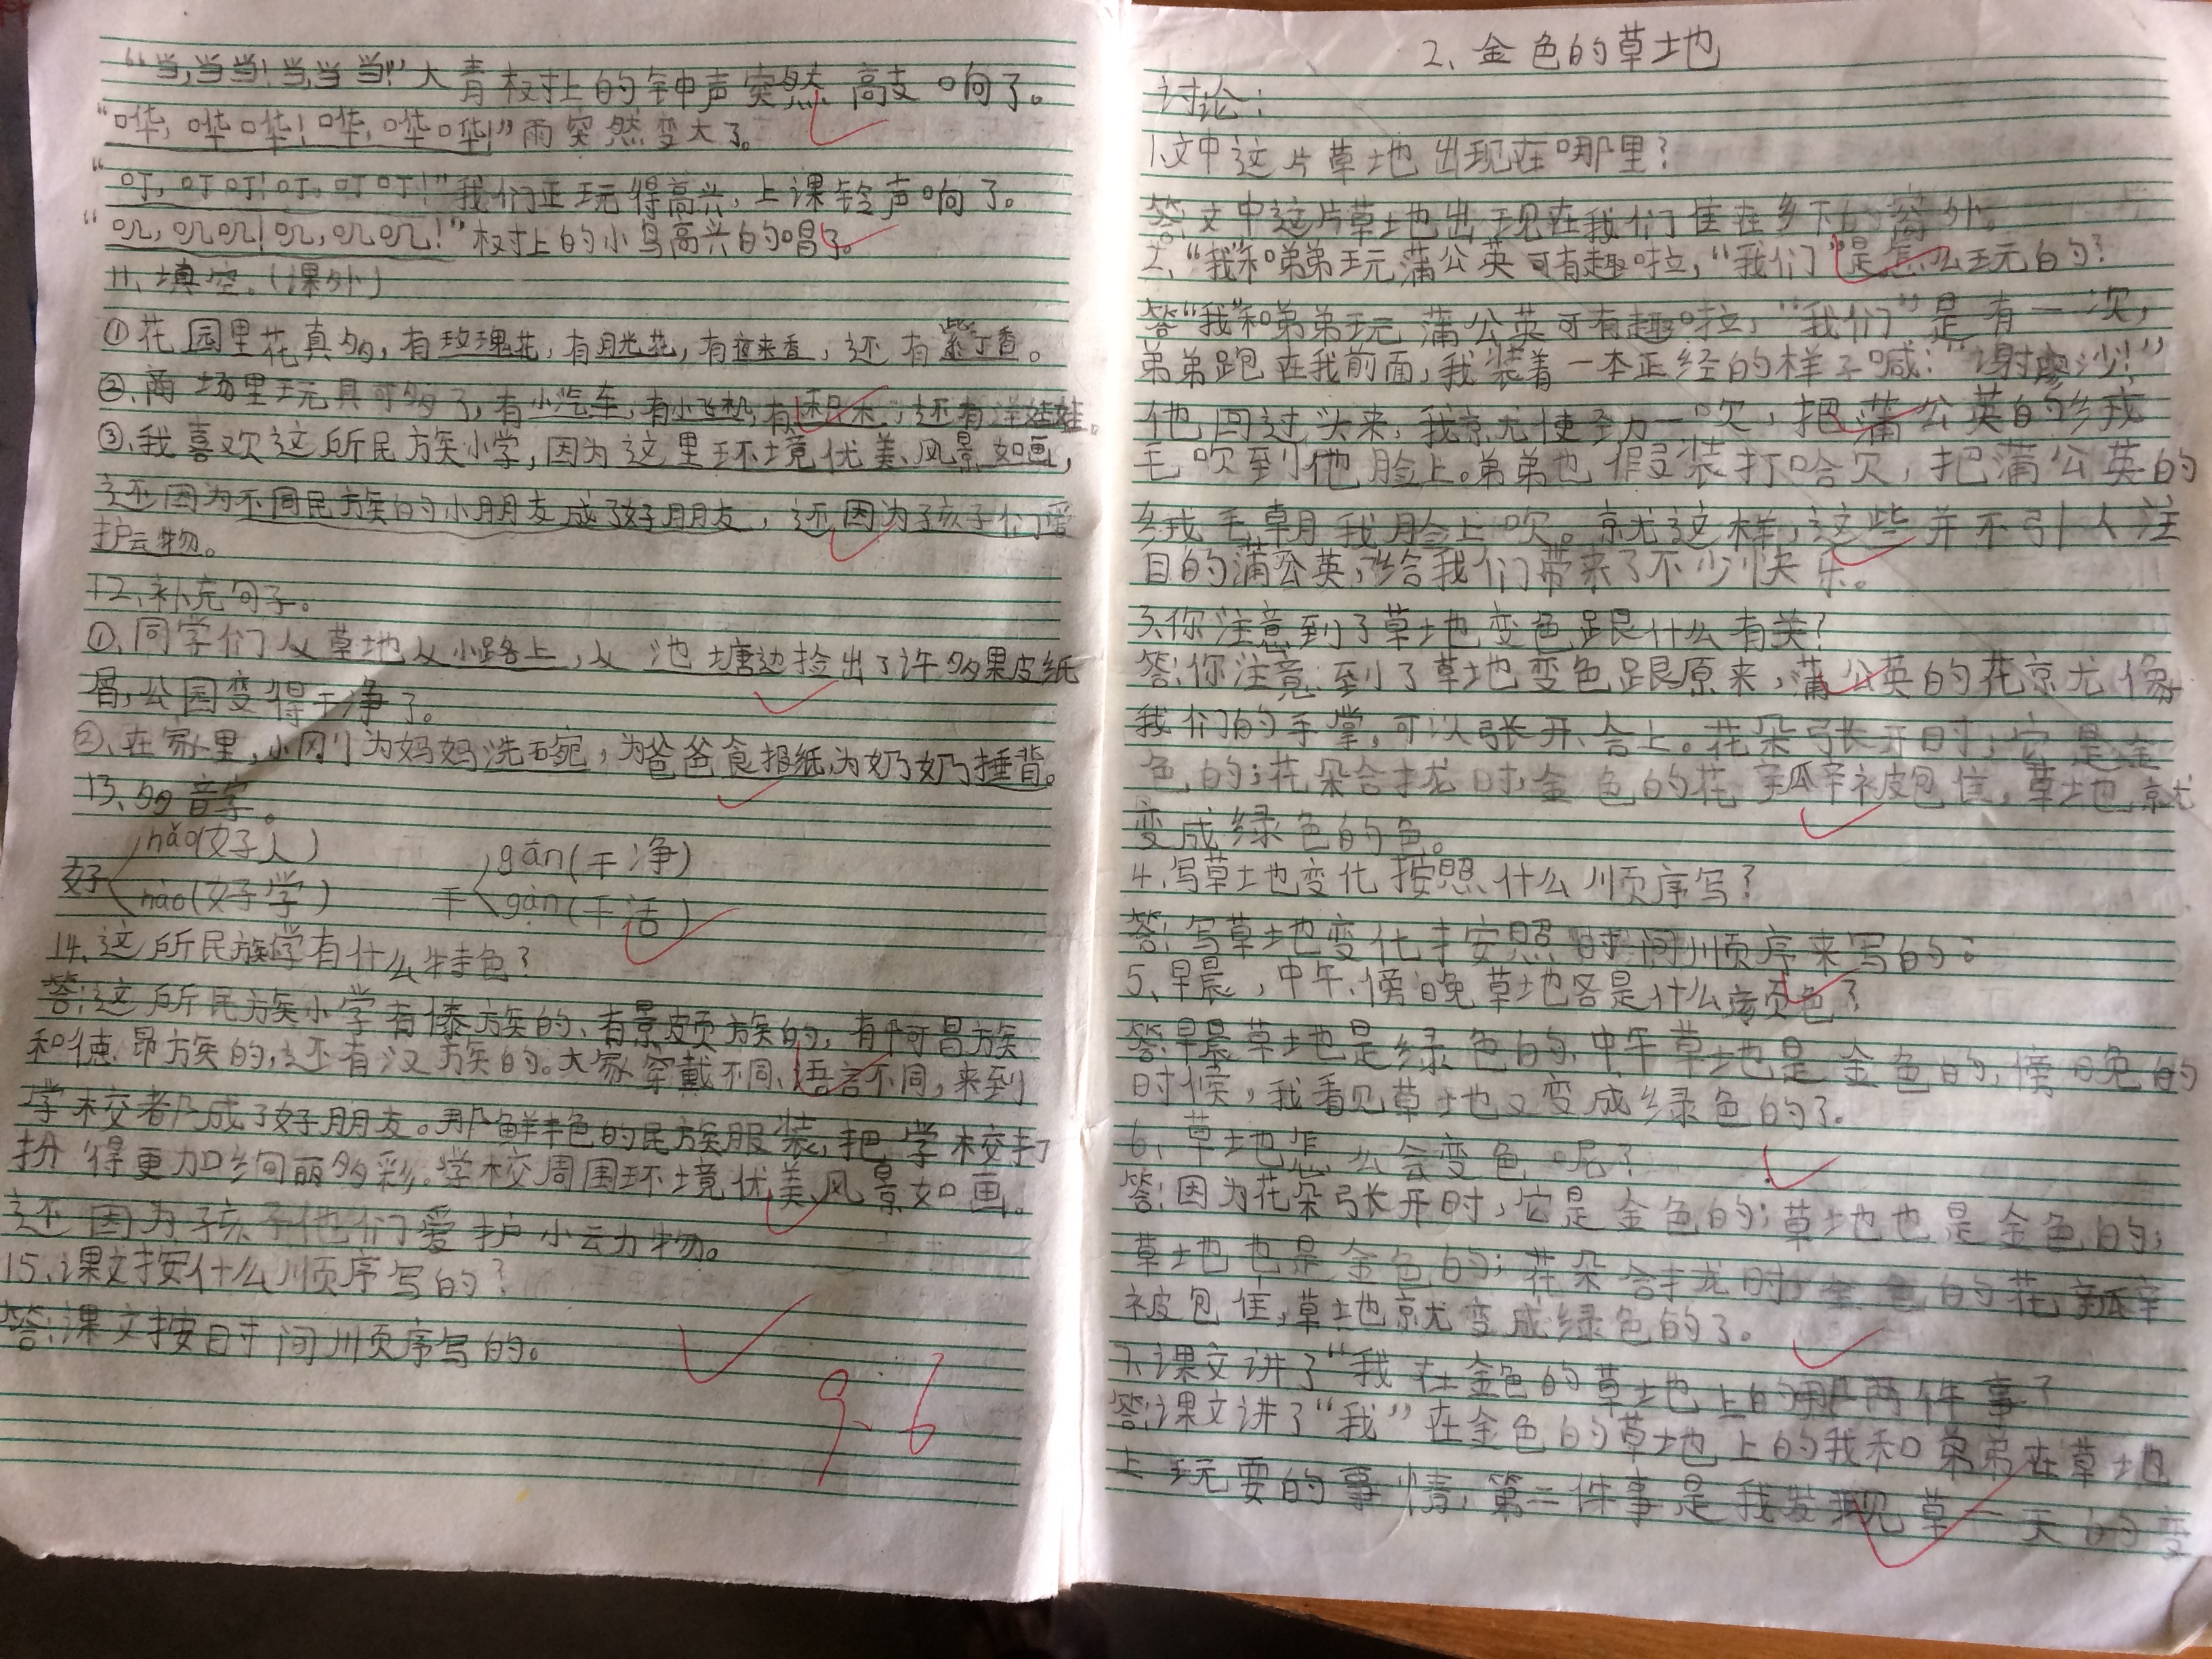 “当,当当!当,当当!”大青树上的钟声突然敲响了。
“哗,哗哗!哗,哗哗!”雨突然变大了。
“叮,叮叮!叮,叮叮!”我们正玩得高兴,上课铃声响了。
“叽,叽叽!叽,叽叽!”树上的小鸟高兴的唱了。
11、填空。(课外)
①花园里花真多,有玫瑰花,有月光花,有夜来香,还有紫丁香。
②、商场里玩具可多了,有小汽车,有小飞机,有积木,还有洋娃娃。
③、我喜欢这所民族小学,因为这里环境优美、风景如画,
还因为不同民族的小朋友成了好朋友,还因为孩子们爱
护动物。
12、补充句子。
①、同学们从草地从小路上,从池塘边捡出了许多果皮纸
屑,公园变得干净了。
②、在家里,小刚为妈妈洗碗,为爸爸拿报纸,为奶奶捶背。
13、多音字。
hǎo(好人) gān(干净)
好 干
hào(好学) gàn(干活)
14、这所民族学有什么特色?
答:这所民族小学有傣族的、有景颇族的,有阿昌族
和德昂族的,还有汉族的。大家穿戴不同、语言不同,来到
学校都成了好朋友。那鲜艳的民族服装,把学校打
扮得更加绚丽多彩。学校周围环境优美,风景如画。
还因为孩子他们爱护小动物。
15、课文按什么顺序写的?
答:课文按时间顺序写的。
9.6
2、金色的草地
讨论:
1、文中这片草地出现在哪里?
答:文中这片草地出现在我们住在乡下的窗外。
2、“我”和弟弟玩蒲公英可有趣啦,“我们”是怎么玩的?
答“我”和弟弟玩蒲公英可有趣啦,“我们”是有一次,
弟弟跑在我前面,我装着一本正经的样子喊:“谢廖沙!”
他回过头来,我就使劲一吹,把蒲公英的绒
毛吹到他脸上。弟弟也假装打哈欠,把蒲公英的
绒毛朝我脸上吹。就这样,这些并不引人注
目的蒲公英,给我们带来了不少快乐。
3、你注意到了草地变色跟什么有关?
答:你注意到了草地变色跟原来,蒲公英的花就像
我们的手掌,可以张开、合上。花朵张开时,它是金
色的;花朵合拢时,金色的花瓣被包住,草地就
变成绿色的色。
4、写草地变化按照什么顺序写?
答:写草地变化按照时间顺序来写的。
5、早晨,中午、傍晚草地各是什么颜色?
答:早晨草地是绿色的,中午草地是金色的,傍晚的
时候,我看见草地又变成绿色的了。
6、草地怎么会变色呢?
答:因为花朵张开时,它是金色的;草地也是金色的;
草地也是金色的;花朵合拢时,金色的花瓣
被包住,草地就变成绿色的了。
7、课文讲了“我在金色的草地上的哪两件事?
答:课文讲了“我”在金色的草地上的我和弟弟在草地
上玩耍的事情,第二件事是我发现草一天的变